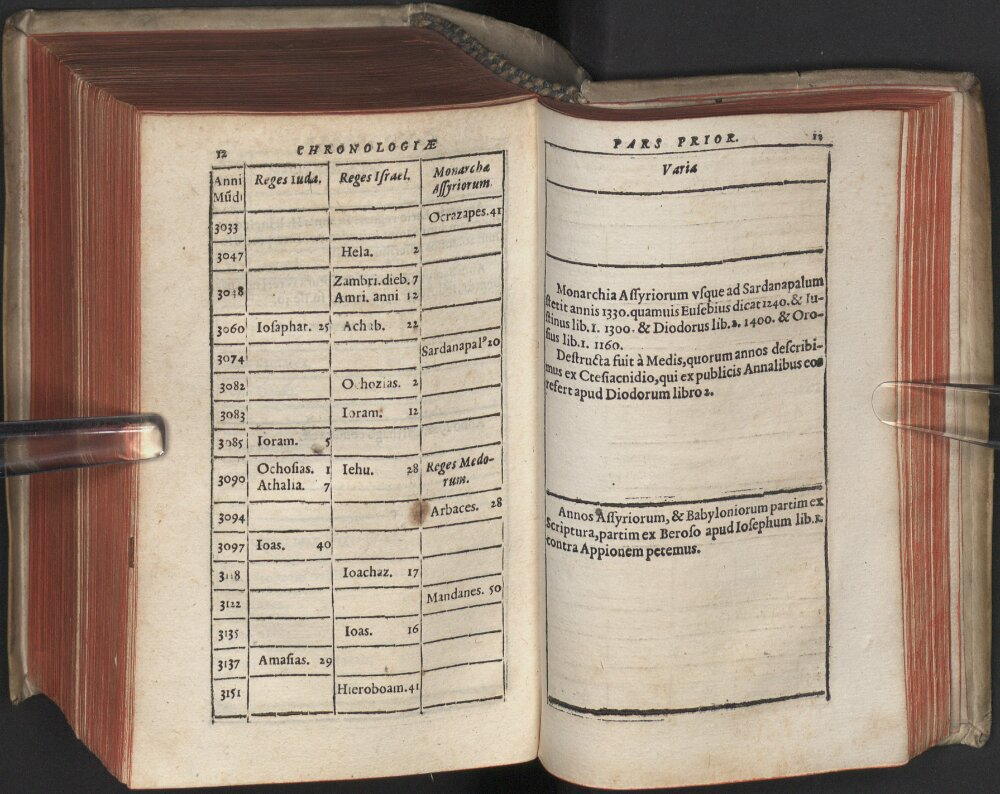 12 CHRONOLOGIÆ
Anni Mũdi Reges Iuda. Reges Israel. Monarchæ Assyriorum.
3033 Ocrazapes. 41
3047 Hela. 2
3048 Zambri. dieb. 7
Amri. anni 12
3060 Iosaphat. 25 Achab. 22
3074 Sardanapalꝰ 20
3082 Ochozias. 2
3083 Ioram. 12
3085 Ioram. 5
3090 Ochosias. 1 Iehu. 28 Reges Medo-
Athalia. 7 rum.
3094 Arbaces. 28
3097 Ioas. 40
3118 Ioachaz. 17
3122 Mandanes. 50
3135 Ioas. 16
3137 Amasias. 29
3151 Hieroboam. 41
PARS PRIOR. 13
Varia
Monarchia Assyriorum vsque ad Sardanapalum
stetit annis 1330. quamuis Eusebius dicat 1240. & Iu-
stinus lib. 1. 1300. & Diodorus lib. 2. 1400. & Oro-
sius lib. 1. 1160.
Destructa fuit à Medis, quorum annos describi-
mus ex Ctesiacnidio, qui ex publicis Annalibus eos
refert apud Diodorum libro 2.
Annos Assyriorum, & Babyloniorum partim ex
Scriptura, partim ex Beroso apud Iosephum lib. 1.
contra Appionem petemus.